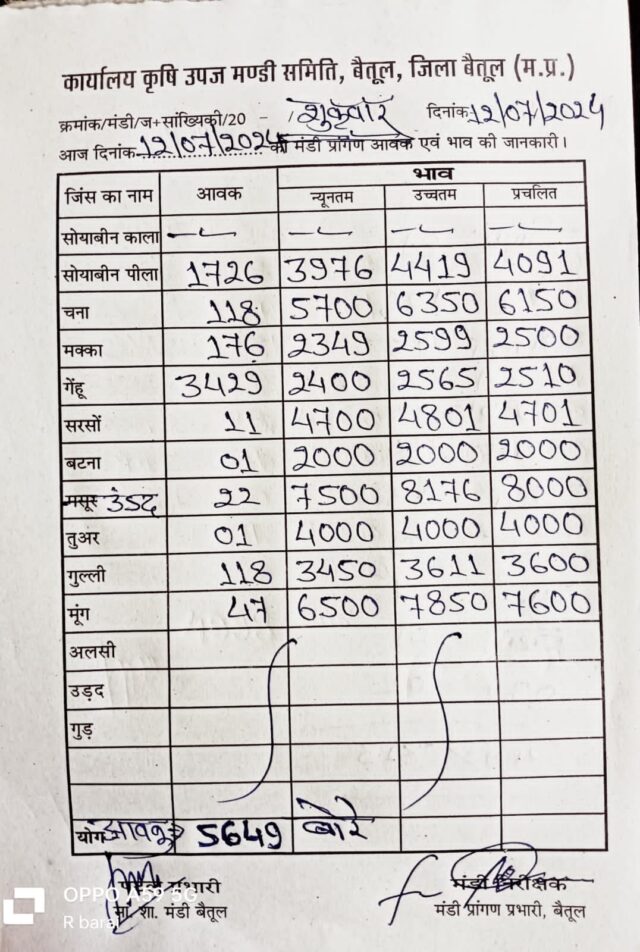 कार्यालय कृषि उपज मण्डी समिति, बैतूल, जिला बैतूल (म.प्र.)
क्रमांक/मंडी/ज+सांख्यिकी/20 - शुक्रवार दिनांक 12/07/2024
आज दिनांक 12/07/2024 की मंडी प्रांगण आवक एवं भाव की जानकारी।
जिंस का नाम आवक भाव
न्यूनतम उच्चतम प्रचलित
सोयाबीन काला — — — —
सोयाबीन पीला 1726 3976 4419 4091
चना 118 5700 6350 6150
मक्का 176 2349 2599 2500
गेंहू 3429 2400 2565 2510
सरसों 11 4700 4801 4701
बटना 01 2000 2000 2000
मसूर उड़द 22 7500 8176 8000
तुअर 01 4000 4000 4000
गुल्ली 118 3450 3611 3600
मूंग 47 6500 7850 7600
अलसी
उड़द
गुड़
योग आवक 5649 बोरे
प्रभारी मंडी निरीक्षक
सा. शा. मंडी बैतूल मंडी प्रांगण प्रभारी, बैतूल
OPPO A59 5G
R bara